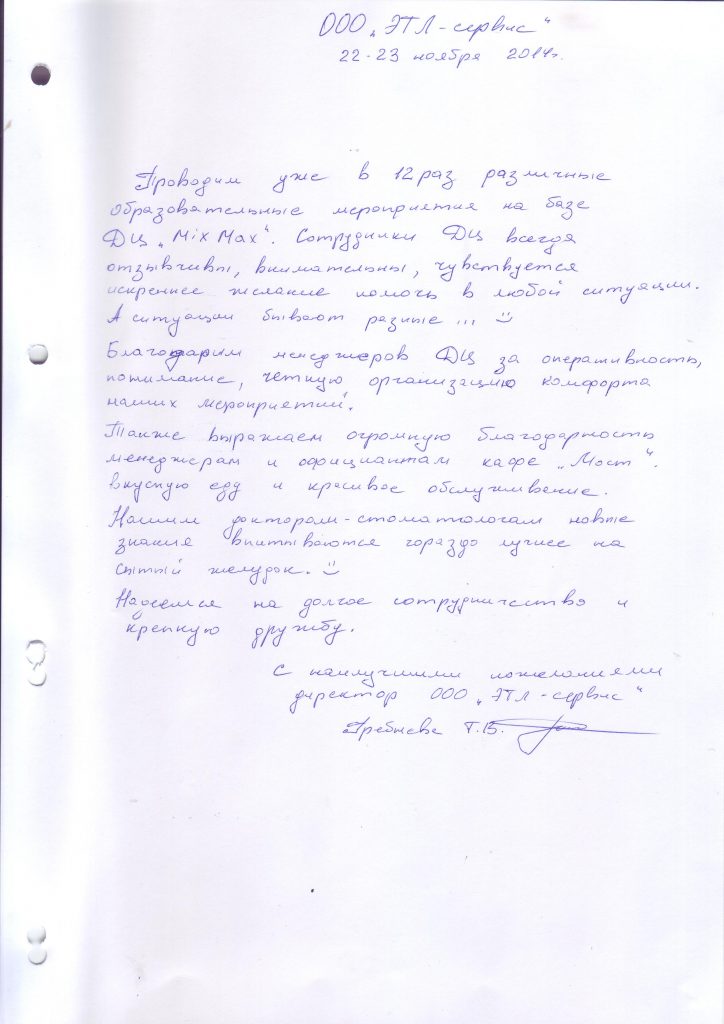 ООО „ЭТЛ-сервис“
22-23 ноября 2014г.
Проводим уже в 12 раз различные
образовательные мероприятия на базе
ДЦ „MixMax“. Сотрудники ДЦ всегда
отзывчивы, внимательны, чувствуется
искреннее желание помочь в любой ситуации.
А ситуации бывают разные ... :)
Благодарим менеджеров ДЦ за оперативность,
понимание, четкую организацию комфорта
наших мероприятий.
Также выражаем огромную благодарность
менеджерам и официантам кафе „Мост“.
вкусную еду и красивое обслуживание.
Нашим докторам-стоматологам новые
знания впитываются гораздо лучшее на
сытый желудок. :)
Надеемся на долгое сотрудничество и
крепкую дружбу.
С наилучшими пожеланиями
директор ООО „ЭТЛ-сервис“
Гребнева Т.В.